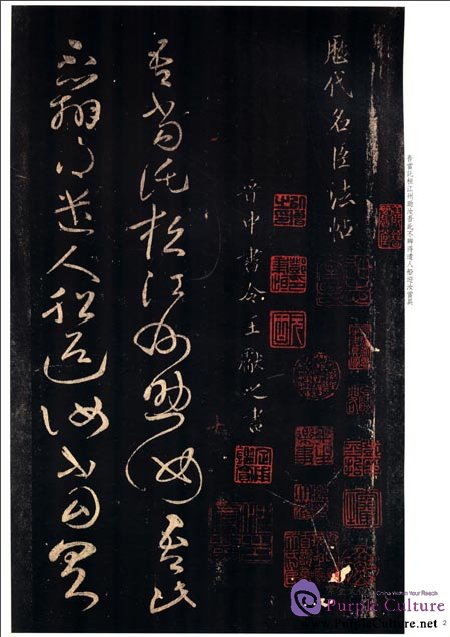 吾當託桓江州助汝吾此不辦得遣人船迎汝當具
歷代名臣法帖
晉中書令王獻之書
吾當託桓江州助汝吾此
不辦得遣人船迎汝當具
China Within Your Reach
Purple Culture
www.PurpleCulture.net
2